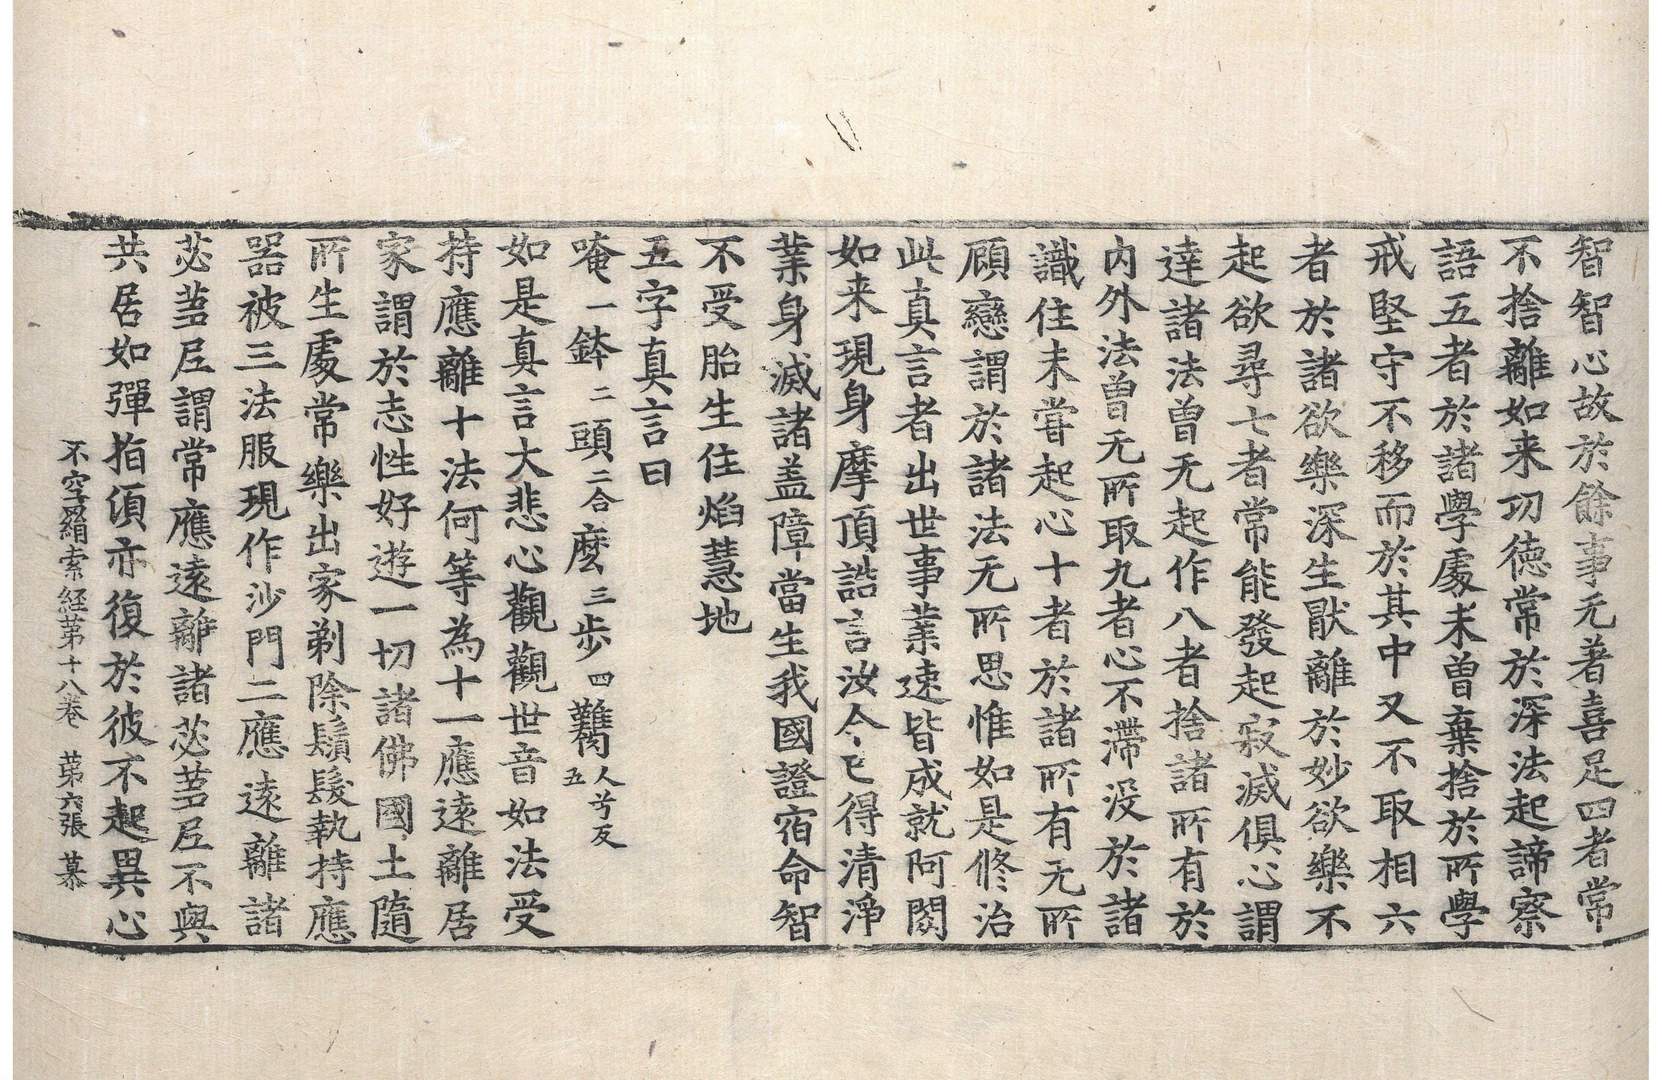 智智心故於餘事无著喜足四者常
不捨離如来功徳常於深法起諦察
語五者於諸學處未曾棄捨於所學
戒堅守不移而於其中又不取相六
者於諸欲樂深生猒離於妙欲樂不
起欲尋七者常能發起寂滅俱心謂
達諸法曾无起作八者捨諸所有於
内外法曾无所取九者心不滯没於諸
識住未甞起心十者於諸所有无所
顧戀謂於諸法无所思惟如是修治
此真言者出世事業速皆成就阿閦
如来現身摩頂誥言汝今已得清淨
業身滅諸盖障當生我國證宿命智
不受胎生住焰慧地
五字真言曰
唵一鉢二頭二合麼三歩四䕼人兮反五
如是真言大悲心觀觀世音如法受
持應離十法何等為十一應遠離居
家謂於志性好遊一切諸佛國土隨
所生處常樂出家剃除鬚髮執持應
器被三法服現作沙門二應遠離諸
苾蒭尼謂常應遠離諸苾蒭尼不與
共居如彈指頃亦復於彼不起異心
不空羂索経苐十八卷 苐六張 慕